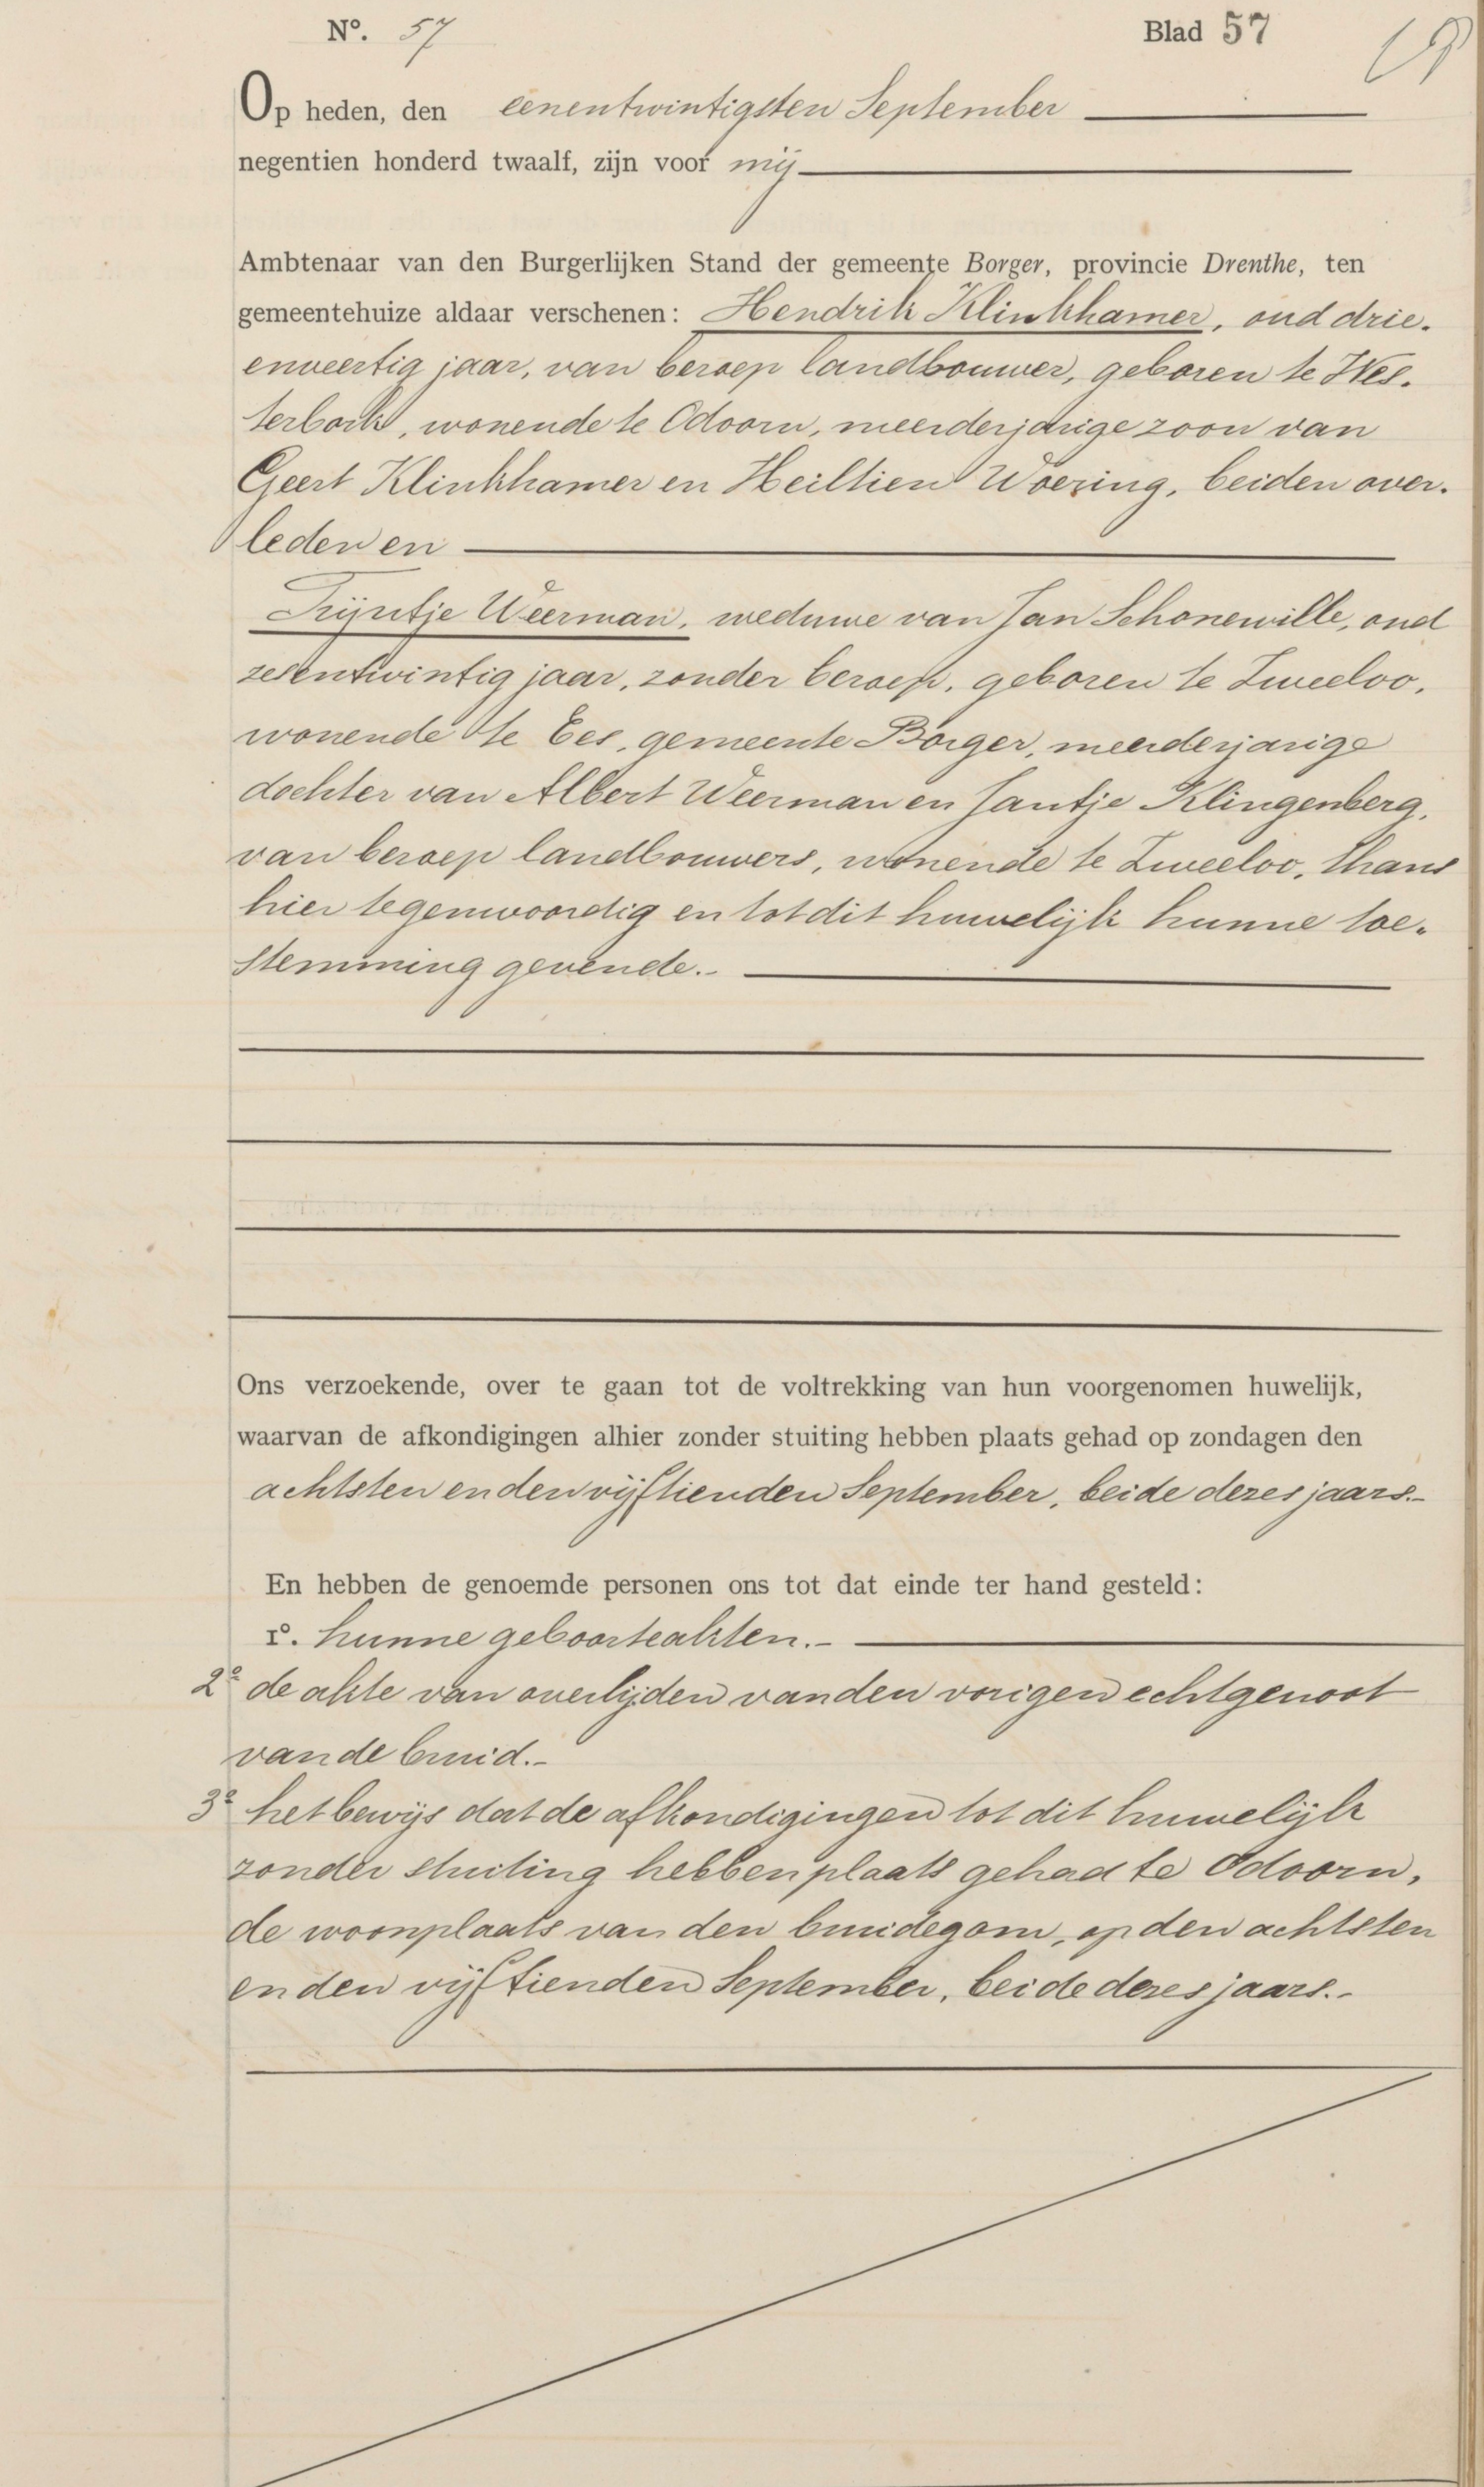 Nº. 57 Blad 57
Op heden, den eenentwintigsten September
negentien honderd twaalf, zijn voor mij
Ambtenaar van den Burgerlijken Stand der gemeente Borger, provincie Drenthe, ten
gemeentehuize aldaar verschenen: Hendrik Klinkhamer, oud drie-
enveertig jaar, van beroep landbouwer, geboren te Wes-
terbork, wonende te Odoorn, meerderjarige zoon van
Geert Klinkhamer en Heiltien Woering, beiden over-
leden en
Trijntje Weerman, weduwe van Jan Schonewille, oud
zesentwintig jaar, zonder beroep, geboren te Zweeloo,
wonende te Ees, gemeente Borger, meerderjarige
dochter van Albert Weerman en Jantje Klingenberg,
van beroep landbouwers, wonende te Zweeloo, thans
hier tegenwoordig en tot dit huwelijk hunne toe-
stemming gevende.-
Ons verzoekende, over te gaan tot de voltrekking van hun voorgenomen huwelijk,
waarvan de afkondigingen alhier zonder stuiting hebben plaats gehad op zondagen den
achtsten en den vijftienden September, beide dezes jaars.-
En hebben de genoemde personen ons tot dat einde ter hand gesteld:
1º. hunne geboorteakten.-
2º de akte van overlijden van den vorigen echtgenoot
van de bruid.-
3º het bewijs dat de afkondigingen tot dit huwelijk
zonder stuiting hebben plaats gehad te Odoorn,
de woonplaats van den bruidegom, op den achtsten
en den vijftienden September, beide dezes jaars.-